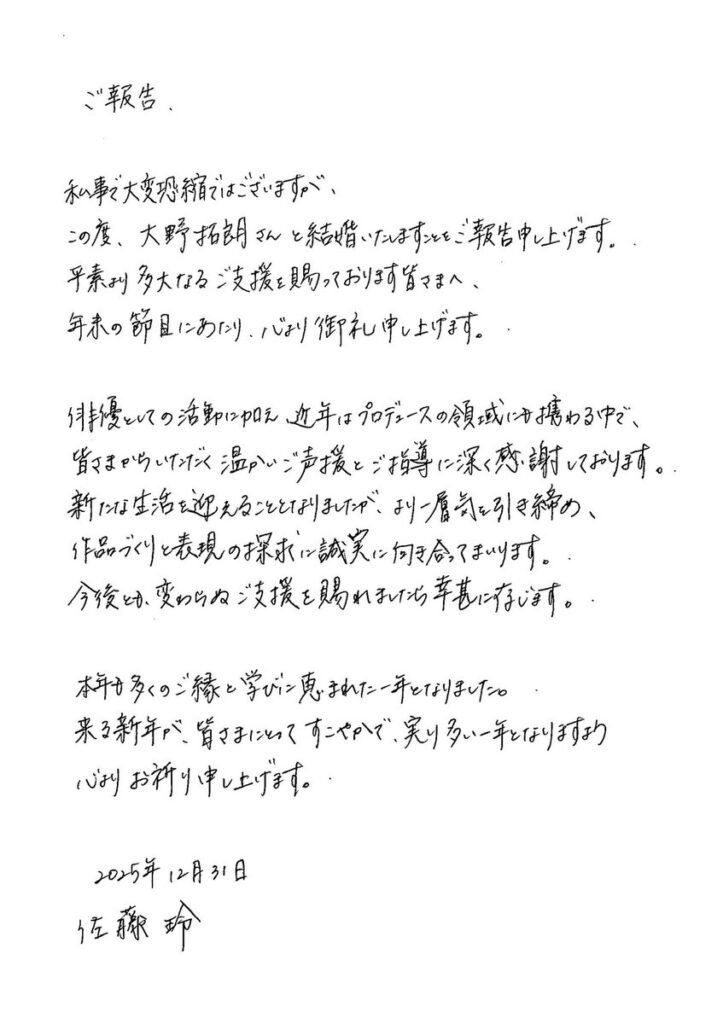 ご報告、
私事で大変恐縮ではございますが、
この度、大野拓朗さんと結婚いたしますことをご報告申し上げます。
平素より多大なるご支援を賜っております皆さまへ、
年末の節目にあたり、心より御礼申し上げます。
俳優としての活動に加え 近年はプロデュースの領域にも携わる中で、
皆さまからいただく温かいご声援とご指導に深く感謝しております。
新たな生活を迎えることとなりましたが、より一層気を引き締め、
作品づくりと表現の探求に誠実に向き合ってまいります。
今後とも、変わらぬご支援を賜れましたら幸甚に存じます。
本年も多くのご縁と学びに恵まれた一年となりました。
来る新年が、皆さまにとってすこやかで、実り多い一年となりますよう
心よりお祈り申し上げます。
2025年12月31日
佐藤 玲